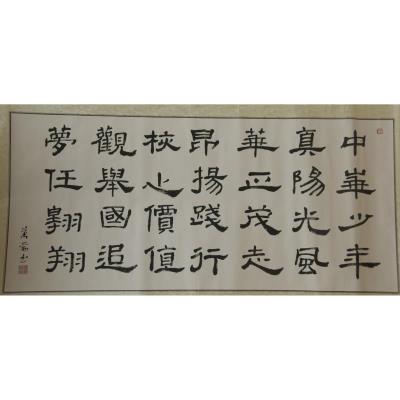 中華少年
真陽光風
華正茂志
昂揚踐行
核心價值
觀舉國追
夢任翱翔